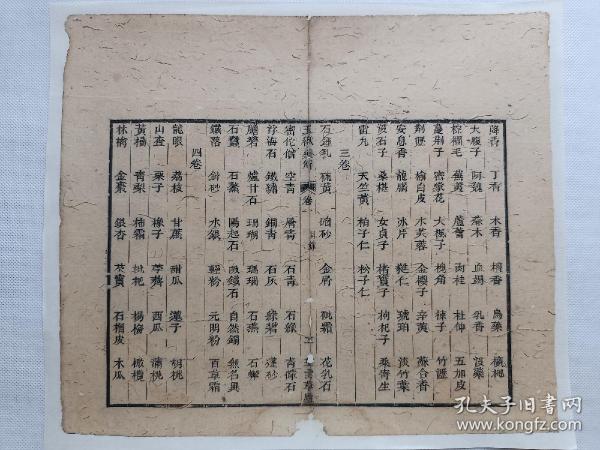 降香 丁香 木香 檀香 烏藥
大腹子 阿魏 蘇木 血竭 乳香 沒藥
棕櫚毛 蕪荑 蘆薈 肉桂 杜仲 五加皮
蔓荊子 密蒙花 大楓子 槐角 楝子 竹瀝
荊瀝 椿白皮 木芙蓉 金櫻子 辛荑 蘇合香
安息香 龍腦 冰片 琥珀 淡竹葉
沒石子 桑椹 女貞子 楮實子 枸杞子 桑寄生
雷丸 天竺黃 柏子仁 松子仁
三卷
石鍾乳 硫黃 硇砂 金屑 砒霜 花乳石
卷 目錄
密佗僧 空青 膚青 石青 石綠 青礞石
浮海石 鐵鏽 銅青 石灰 蓬砂
爐甘石 珊瑚 瑪瑙 石燕 石蟹
石蠶 石鱉 陽起石 自然銅 無名異
鐵落 針砂 水銀 輕粉 元明粉 百草霜
四卷
龍眼 荔枝 甘蔗 甜瓜 蓮子 胡桃
山查 栗子 橡子 荸薺 西瓜 蒲桃
黃楊 青梨 柿霜 枇杷 楊梅 橄欖
林檎 金棗 銀杏 芡實 石榴皮 木瓜
孔夫子旧書网
www.kongfz.com